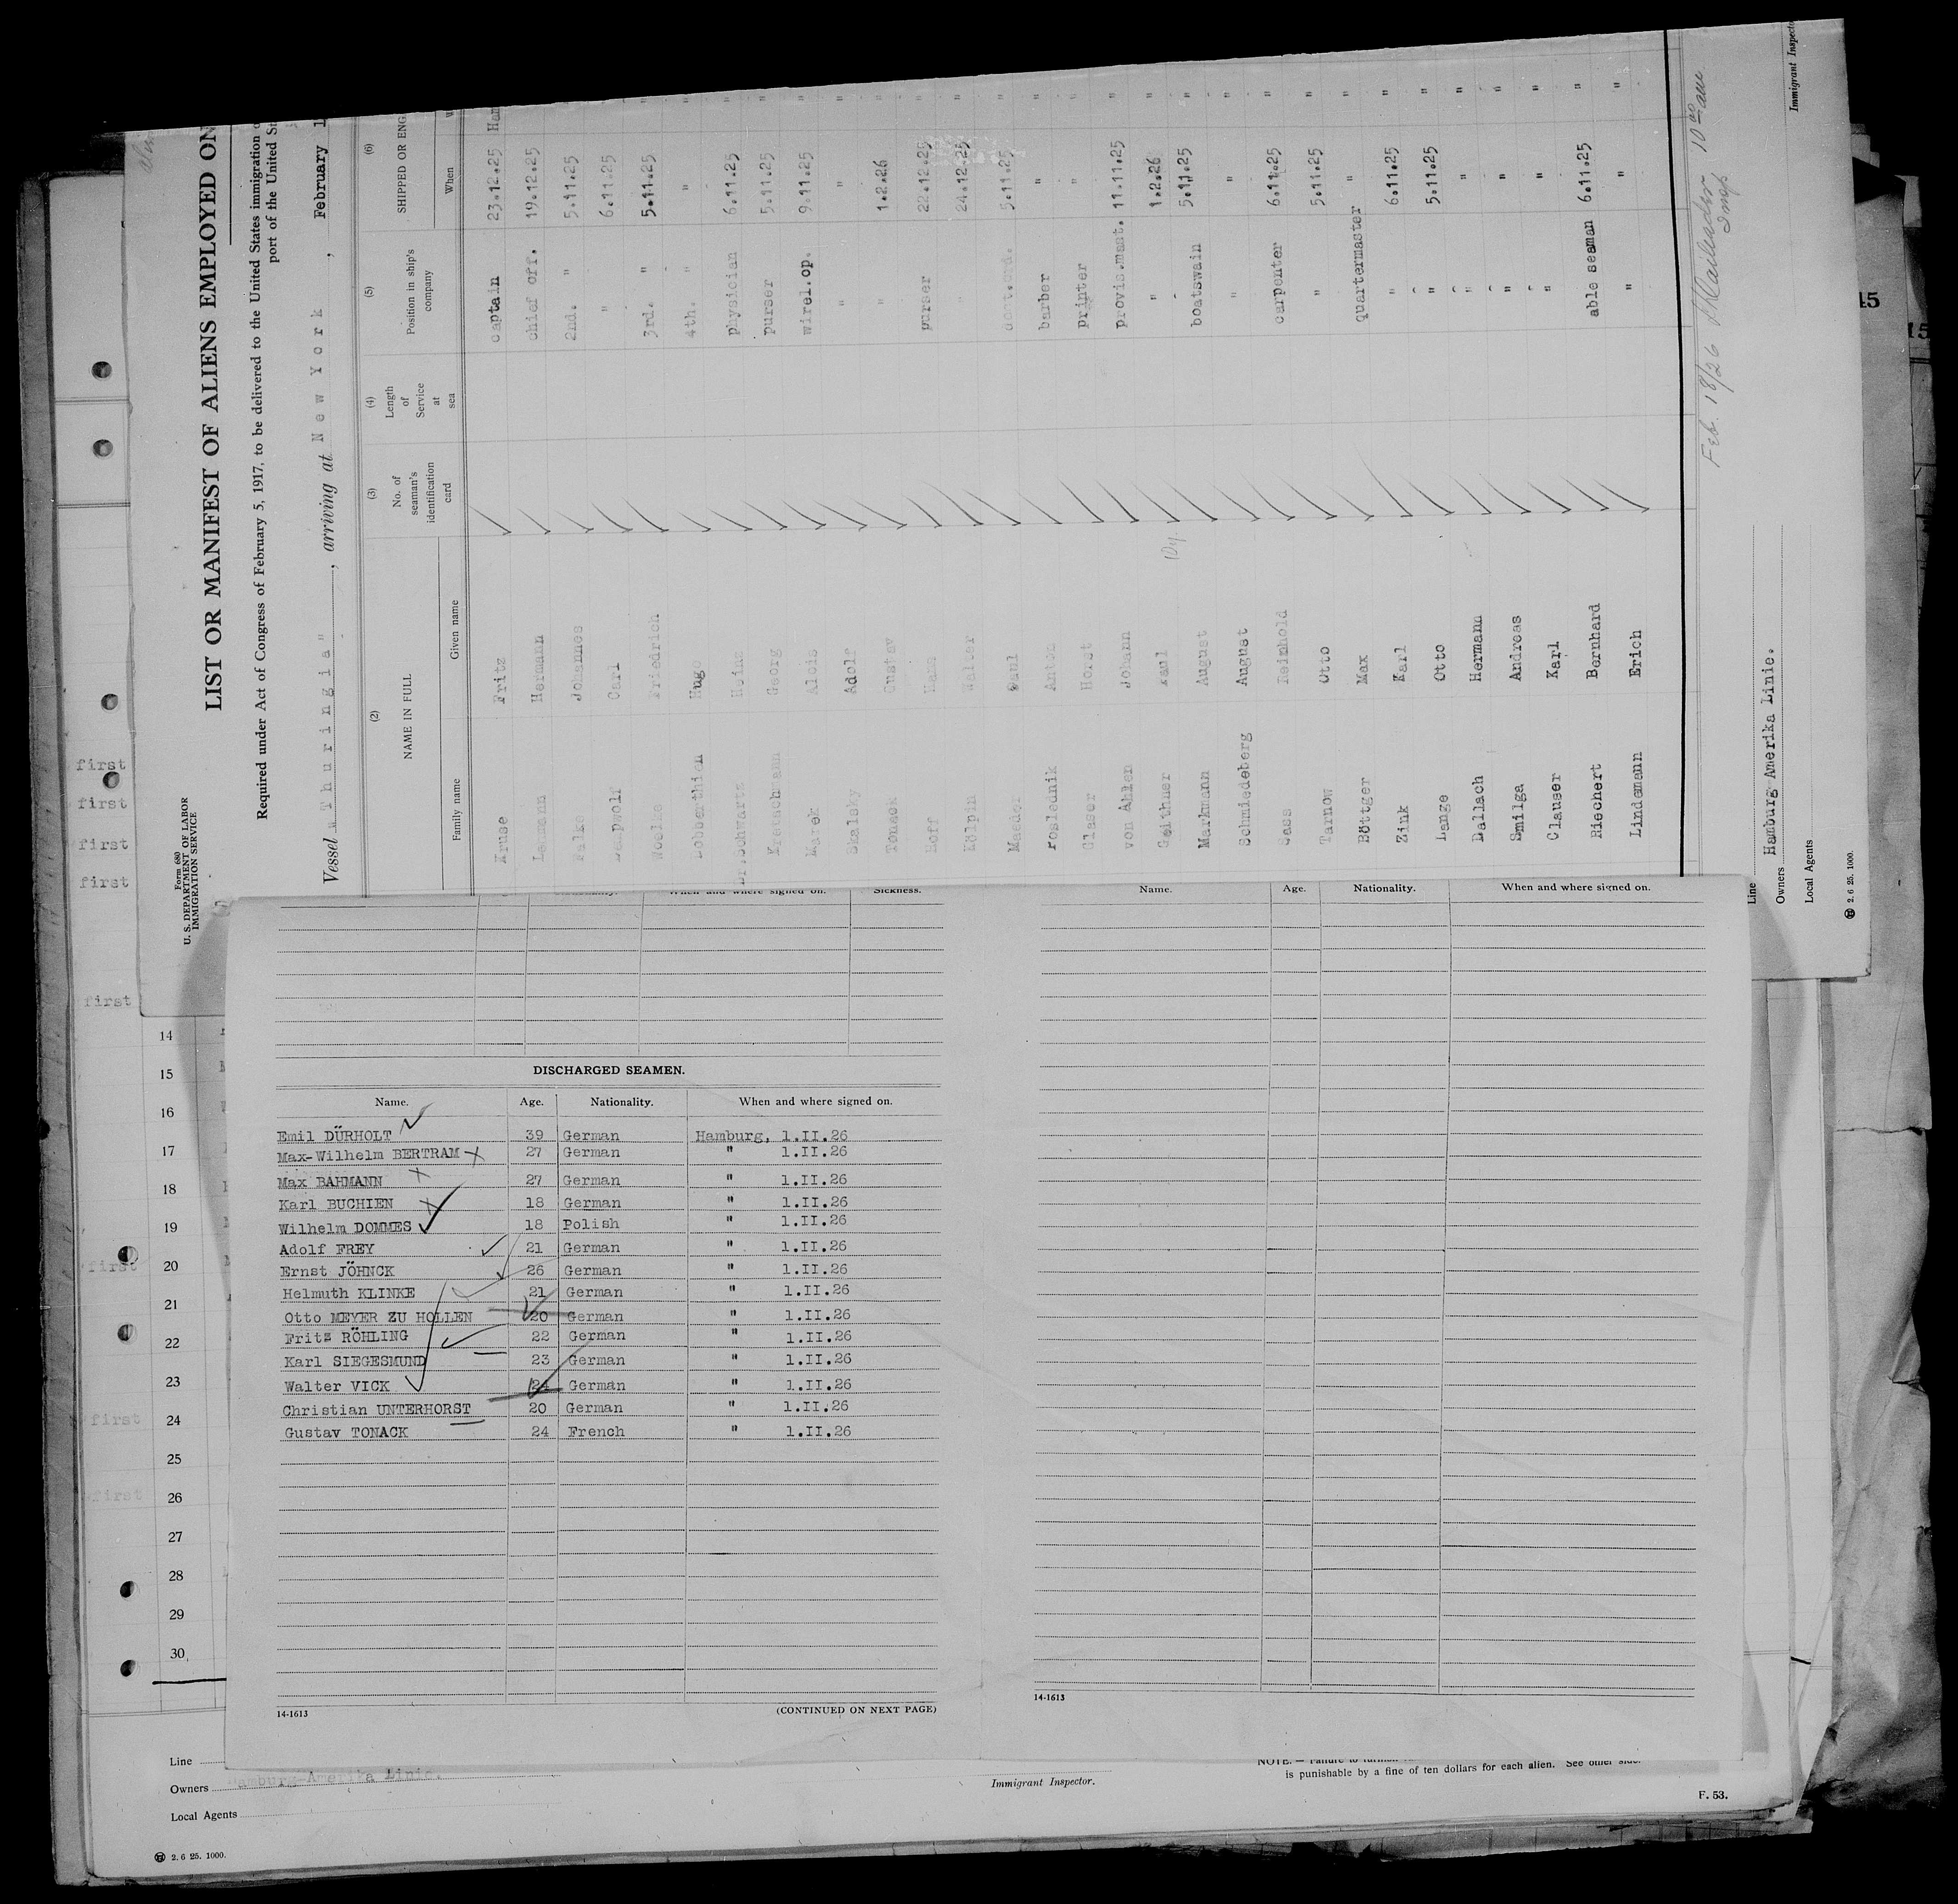 Form 680
U. S. DEPARTMENT OF LABOR
IMMIGRATION SERVICE
LIST OR MANIFEST OF ALIENS EMPLOYED ON
Required under Act of Congress of February 5, 1917, to be delivered to the United States immigration
port of the United
Vessel "Thuringia", arriving at New York, February 1
(2) (3) (4) (5) (6)
NAME IN FULL No. of seaman's identification card Length of Service at sea Position in ship's company SHIPPED OR ENG
Family name Given name When
Kruse Fritz captain 23.12.25 Ham
Hermann chief off. 19.12.25 "
Falke Johannes 2nd. " 5.11.25 "
Carl " 6.11.25 "
Friedrich 3rd. " 5.11.25 "
Dobberthien Hugo 4th. " " "
Dr.Schwartz Heinz physician 6.11.25 "
Georg purser 5.11.25 "
Marek Alois wirel.op. 9.11.25 "
Skalsky Adolf " " "
Gustav " 1.2.26 "
Hoff Hans purser 22.12.25 "
Kölpin Walter " 24.12.25 "
Maeder Paul 5.11.25 "
Poslednik Anton barber " "
Glaser Horst printer " "
von Ahlen Johann provis.mast. 11.11.25 "
Geithner Paul " 1.2.26 "
Markmann August boatswain 5.11.25 "
Schmiedeberg August " " "
Sass Reinhold carpenter 6.11.25 "
Tarnow Otto " 5.11.25 "
Böttger Max quartermaster " "
Zink Karl " 6.11.25 "
Lange Otto " 5.11.25 "
Dallach Hermann " " "
Smilga Andreas " " "
Clauser Karl " " "
Riechert Bernhard able seaman 6.11.25 "
Lindemann Erich " " "
Feb. 18/26 10 00 am
Immigrant Inspecto
Line
Owners Hamburg Amerika Linie.
Local Agents
2. 6 25. 1000.
15
15
first
first
first
first
first
first
first
first
14
15
16
17
18
19
20
21
22
23
24
25
26
27
28
29
30
When and where signed on. Sickness.
DISCHARGED SEAMEN.
Name. Age. Nationality. When and where signed on.
Emil DÜRHOLT 39 German Hamburg, 1.II.26
Max-Wilhelm BERTRAM 27 German " 1.II.26
Max BAHMANN 27 German " 1.II.26
Karl BUCHIEN 18 German " 1.II.26
Wilhelm DOMMES 18 Polish " 1.II.26
Adolf FREY 21 German " 1.II.26
Ernst JÖHNCK 26 German " 1.II.26
Helmuth KLINKE 21 German " 1.II.26
Otto MEYER ZU HOLLEN 20 German " 1.II.26
Fritz RÖHLING 22 German " 1.II.26
Karl SIEGESMUND 23 German " 1.II.26
Walter VICK 24 German " 1.II.26
Christian UNTERHORST 20 German " 1.II.26
Gustav TONACK 24 French " 1.II.26
14-1613 (CONTINUED ON NEXT PAGE)
Name. Age. Nationality. When and where signed on.
14-1613
Line
Owners Hamburg-Amerika Linie.
Local Agents
Immigrant Inspector.
NOTE. — Failure to furnish
is punishable by a fine of ten dollars for each alien. See other side.
F. 53.
2. 6 25. 1000.